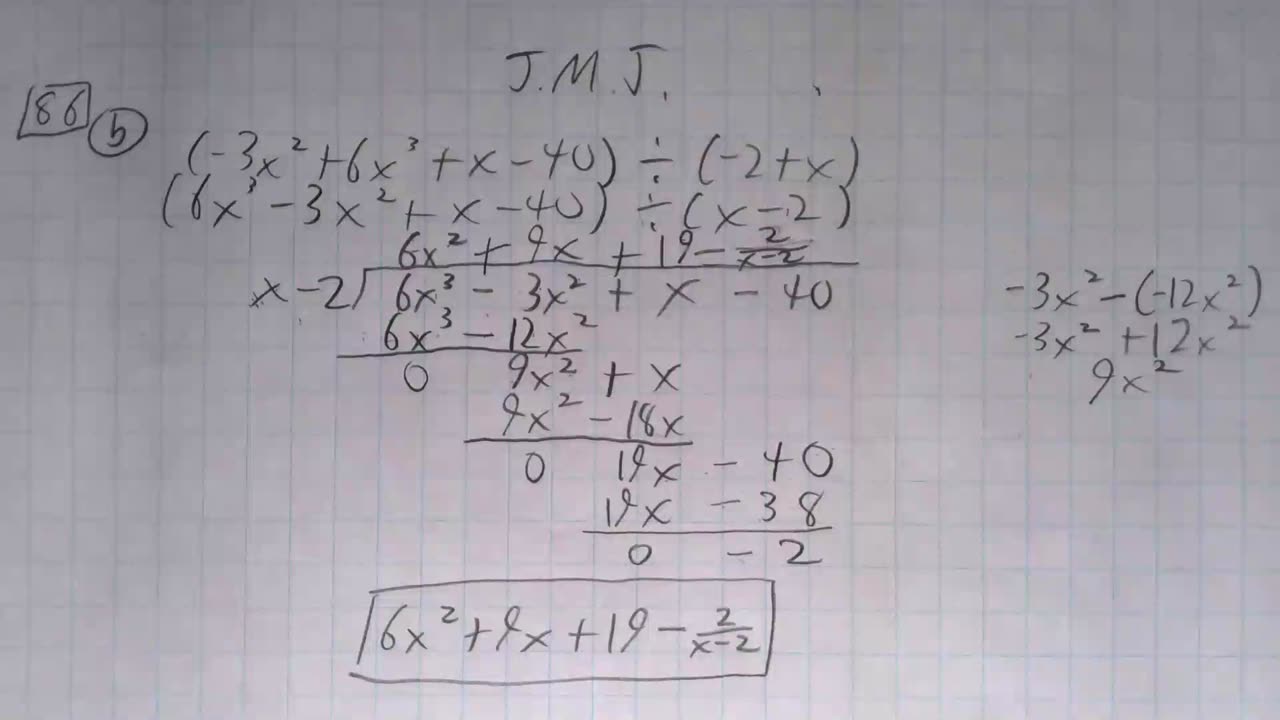 J.M.J.
86 b
(-3x² + 6x³ + x - 40) ÷ (-2 + x)
(6x³ - 3x² + x - 40) ÷ (x - 2)
6x² + 9x + 19 - 2/(x-2)
x - 2 ) 6x³ - 3x² + x - 40
6x³ - 12x²
0 9x² + x
9x² - 18x
0 19x - 40
19x - 38
0 - 2
6x² + 9x + 19 - 2/(x-2)
-3x² - (-12x²)
-3x² + 12x²
9x²